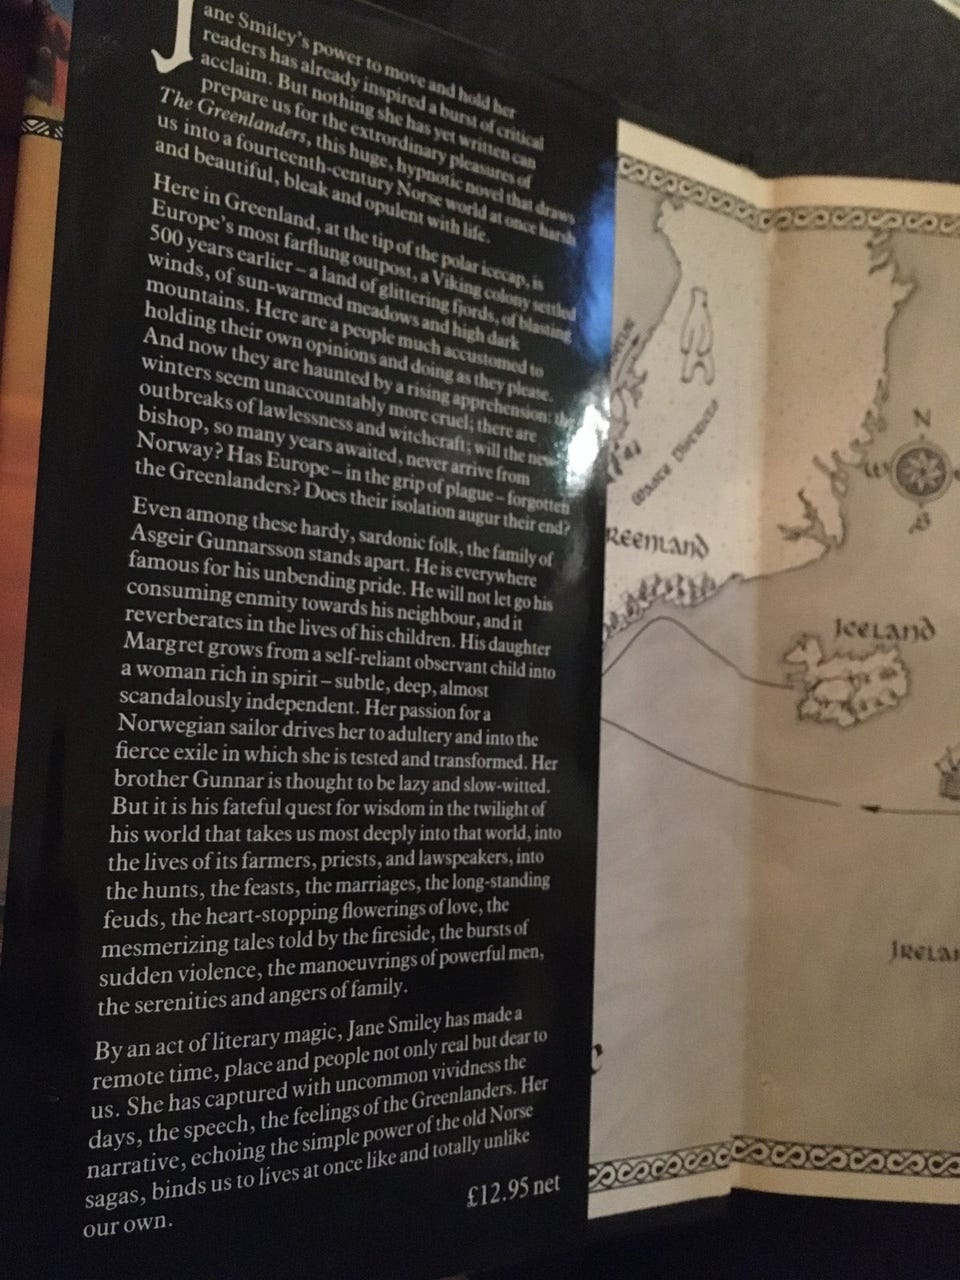 Jane Smiley's power to move and hold her
readers has already inspired a burst of critical
acclaim. But nothing she has yet written can
prepare us for the extrordinary pleasures of
The Greenlanders, this huge, hypnotic novel that draws
us into a fourteenth-century Norse world at once harsh
and beautiful, bleak and opulent with life.
Here in Greenland, at the tip of the polar icecap, is
Europe's most farflung outpost, a Viking colony settled
500 years earlier – a land of glittering fjords, of blasting
winds, of sun-warmed meadows and high dark
mountains. Here are a people much accustomed to
holding their own opinions and doing as they please.
And now they are haunted by a rising apprehension: the
winters seem unaccountably more cruel; there are
outbreaks of lawlessness and witchcraft; will the new
bishop, so many years awaited, never arrive from
Norway? Has Europe – in the grip of plague – forgotten
the Greenlanders? Does their isolation augur their end?
Even among these hardy, sardonic folk, the family of
Asgeir Gunnarsson stands apart. He is everywhere
famous for his unbending pride. He will not let go his
consuming enmity towards his neighbour, and it
reverberates in the lives of his children. His daughter
Margret grows from a self-reliant observant child into
a woman rich in spirit – subtle, deep, almost
scandalously independent. Her passion for a
Norwegian sailor drives her to adultery and into the
fierce exile in which she is tested and transformed. Her
brother Gunnar is thought to be lazy and slow-witted.
But it is his fateful quest for wisdom in the twilight of
his world that takes us most deeply into that world, into
the lives of its farmers, priests, and lawspeakers, into
the hunts, the feasts, the marriages, the long-standing
feuds, the heart-stopping flowerings of love, the
mesmerizing tales told by the fireside, the bursts of
sudden violence, the manoeuvrings of powerful men,
the serenities and angers of family.
By an act of literary magic, Jane Smiley has made a
remote time, place and people not only real but dear to
us. She has captured with uncommon vividness the
days, the speech, the feelings of the Greenlanders. Her
narrative, echoing the simple power of the old Norse
sagas, binds us to lives at once like and totally unlike
our own.
£12.95 net
N
S
reenland
Iceland
Irela